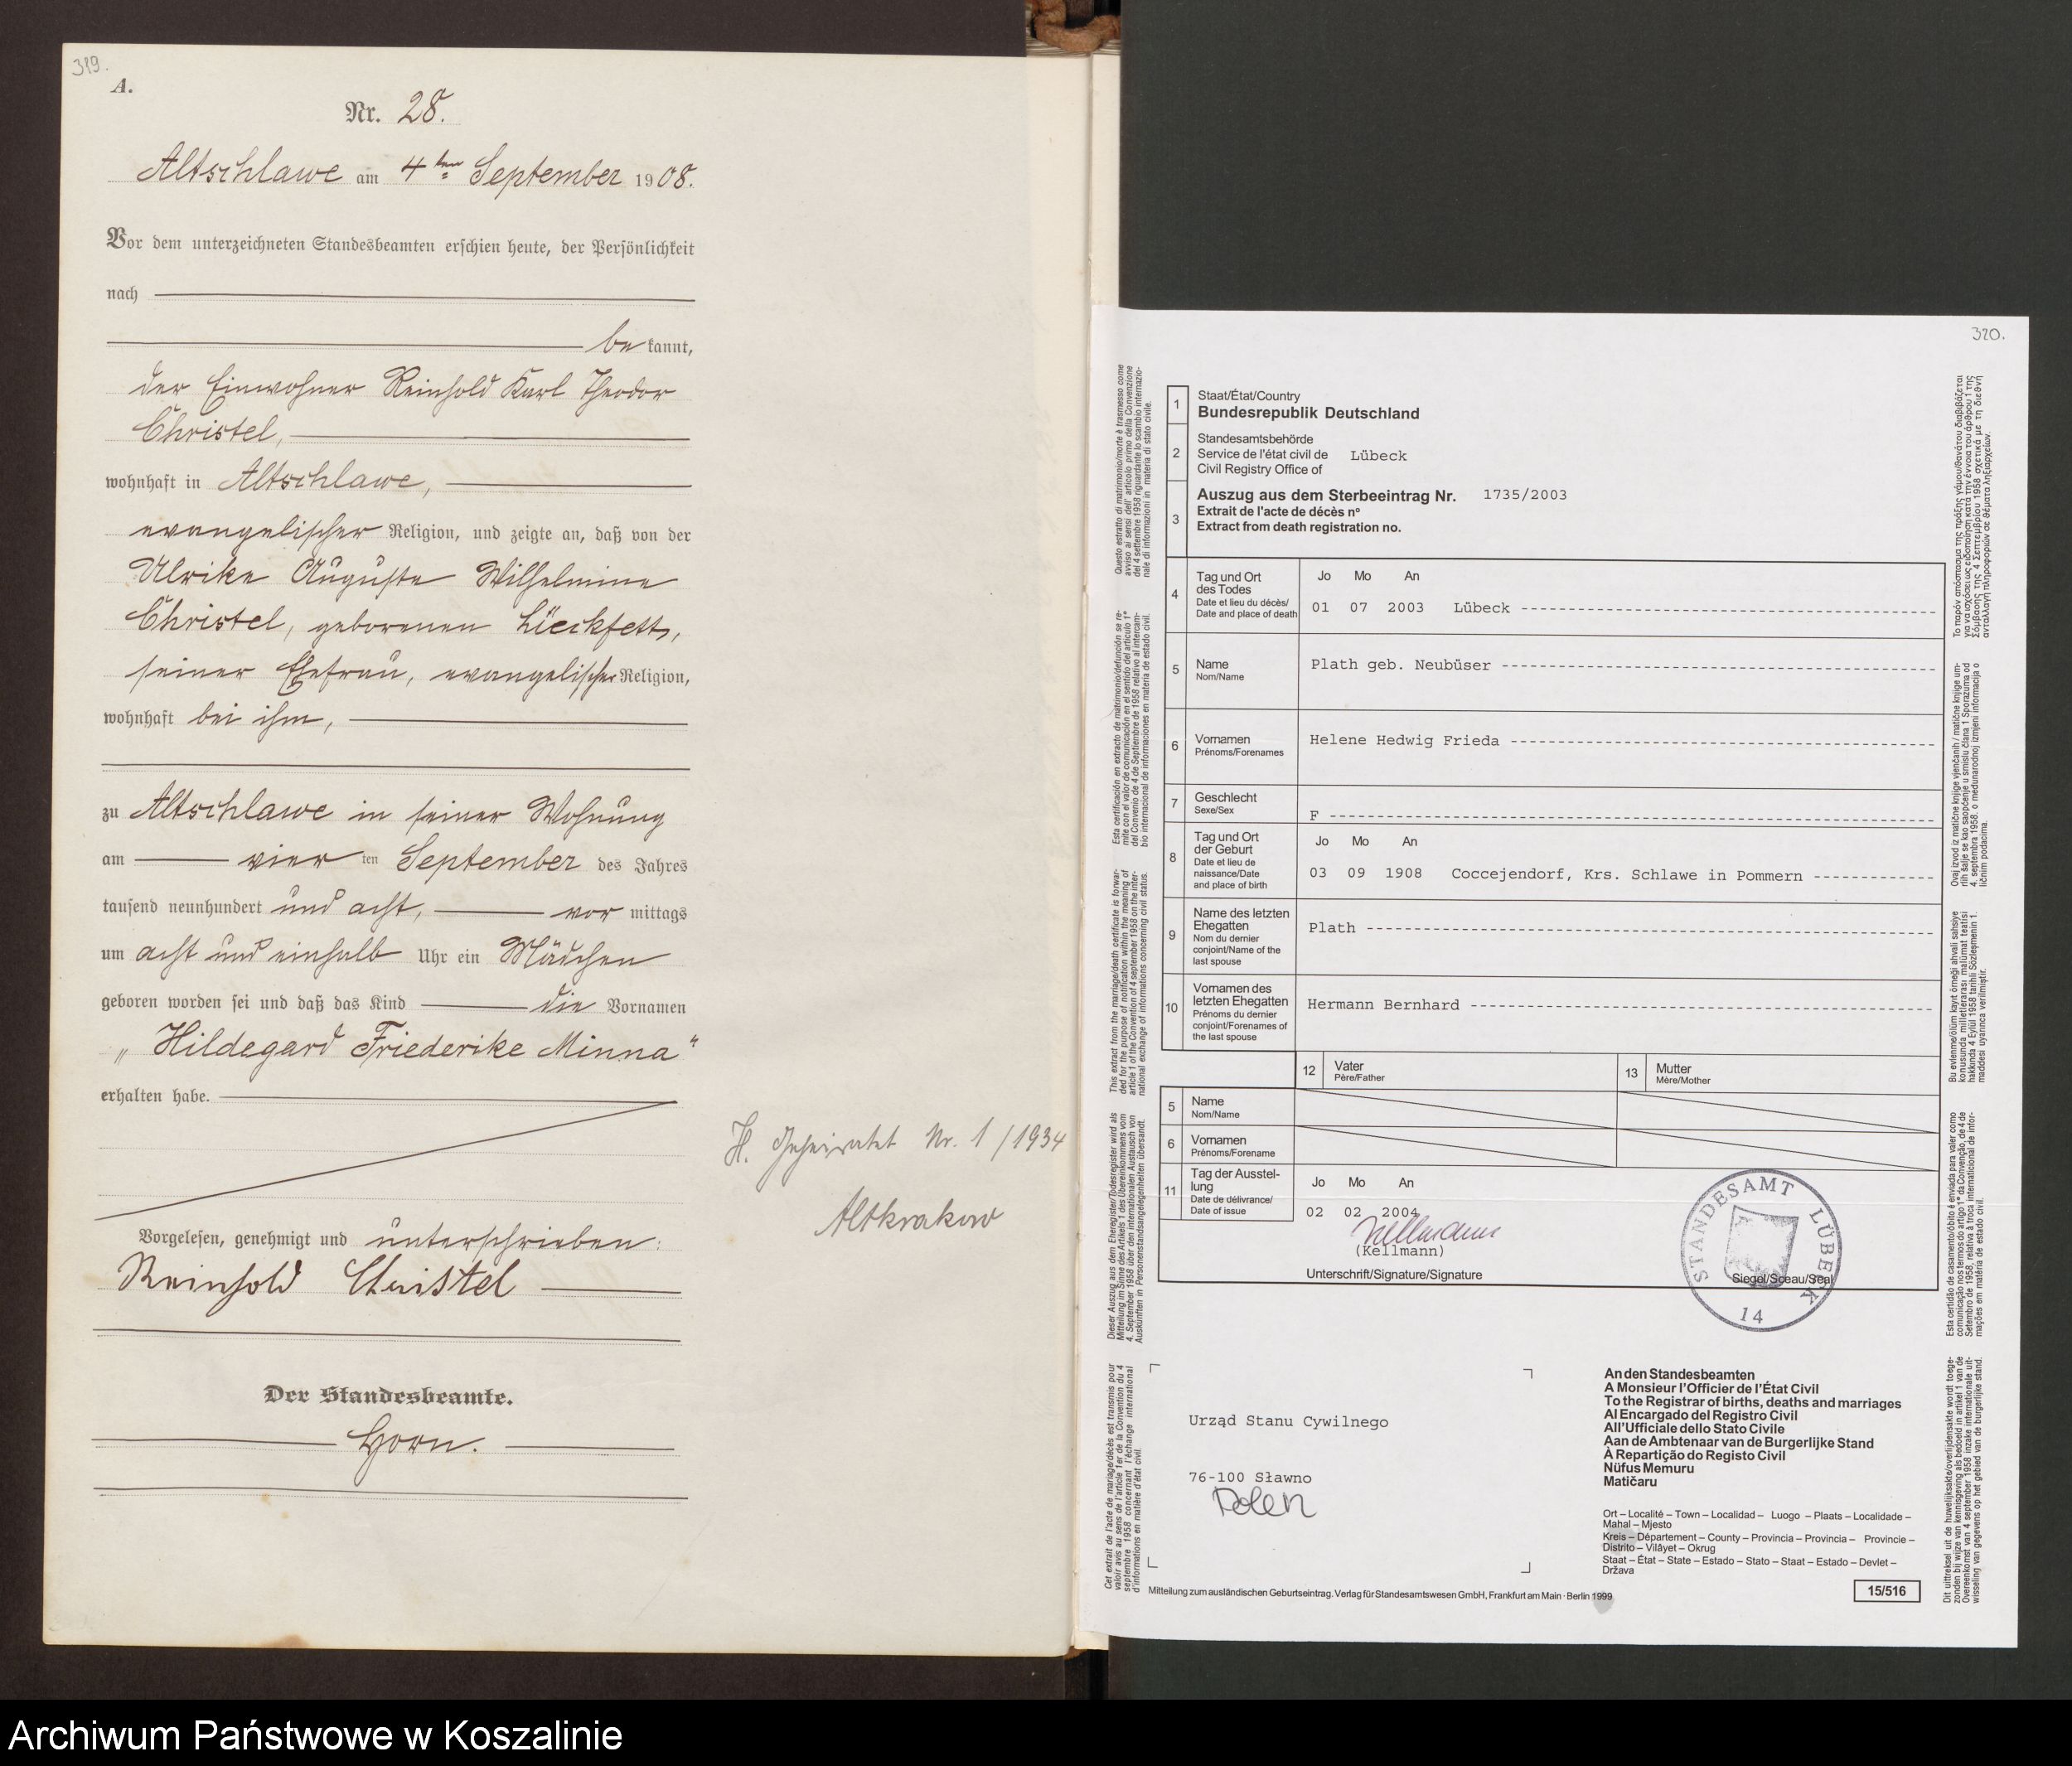 319.
A.
Nr. 28.
Altschlawe am 4ten September 1908.
Vor dem unterzeichneten Standesbeamten erschien heute, der Persönlichkeit
nach
be kannt,
der Einwohner Reinhold Karl Theodor
Christel,
wohnhaft in Altschlawe,
evangelischer Religion, und zeigte an, daß von der
Ulrike Auguste Wilhelmine
Christel, geborenen Lückfett,
seiner Ehefrau, evangelischer Religion,
wohnhaft bei ihm,
zu Altschlawe in seiner Wohnung
am vier ten September des Jahres
tausend neunhundert und acht, vor mittags
um acht und einhalb Uhr ein Mädchen
geboren worden sei und daß das Kind die Vornamen
„Hildegard Friederike Minna“
erhalten habe.
H. Geheiratet Nr. 1/1934
Altkrakow
Vorgelesen, genehmigt und unterschrieben:
Reinhold Christel
Der Standesbeamte.
Horn.
320.
1 Staat/État/Country
Bundesrepublik Deutschland
2 Standesamtsbehörde
Service de l'état civil de Lübeck
Civil Registry Office of
3 Auszug aus dem Sterbeeintrag Nr. 1735/2003
Extrait de l'acte de décès nº
Extract from death registration no.
4 Tag und Ort Jo Mo An
des Todes
Date et lieu du décès/ 01 07 2003 Lübeck
Date and place of death
5 Name Plath geb. Neubüser
Nom/Name
6 Vornamen Helene Hedwig Frieda
Prénoms/Forenames
7 Geschlecht
Sexe/Sex F
8 Tag und Ort Jo Mo An
der Geburt
Date et lieu de
naissance/Date 03 09 1908 Coccejendorf, Krs. Schlawe in Pommern
and place of birth
9 Name des letzten
Ehegatten Plath
Nom du dernier
conjoint/Name of the
last spouse
10 Vornamen des
letzten Ehegatten Hermann Bernhard
Prénoms du dernier
conjoint/Forenames of
the last spouse
12 Vater
Père/Father
13 Mutter
Mère/Mother
5 Name
Nom/Name
6 Vornamen
Prénoms/Forename
11 Tag der Ausstel-
lung Jo Mo An
Date de délivrance/
Date of issue 02 02 2004
Kellmann
(Kellmann)
Unterschrift/Signature/Signature
Siegel/Sceau/Seal
STANDESAMT LÜBECK
14
Urząd Stanu Cywilnego
76-100 Sławno
Polen
An den Standesbeamten
A Monsieur l'Officier de l'État Civil
To the Registrar of births, deaths and marriages
Al Encargado del Registro Civil
All'Ufficiale dello Stato Civile
Aan de Ambtenaar van de Burgerlijke Stand
À Repartição do Registo Civil
Nüfus Memuru
Matičaru
Ort – Localité – Town – Localidad – Luogo – Plaats – Localidade –
Mahal – Mjesto
Kreis – Département – County – Provincia – Provincia – Provincie –
Distrito – Vilâyet – Okrug
Staat – État – State – Estado – Stato – Staat – Estado – Devlet –
Država
15/516
Mitteilung zum ausländischen Geburtseintrag. Verlag für Standesamtswesen GmbH, Frankfurt am Main · Berlin 1999
Questo estratto di matrimonio/morte è trasmesso come
avviso ai sensi dell' articolo primo della Convenzione
del 4 settembre 1958 riguardante lo scambio internazio-
nale di informazioni in materia di stato civile.
Esta certificación en extracto de matrimonio/defunción se re-
mite con el valor de comunicación en el sentido del artículo 1º
del Convenio de 4 de Septiembre de 1958 relativo al intercam-
bio internacional de informaciones en materia de estado civil.
This extract from the marriage/death certificate is forwar-
ded for the purpose of notification within the meaning of
article 1 of the Convention of 4 september 1958 on the inter-
national exchange of informations concerning civil status.
Dieser Auszug aus dem Eheregister/Todesregister wird als
Mitteilung im Sinne des Artikels 1 des Übereinkommens vom
4. September 1958 über den internationalen Austausch von
Auskünften in Personenstandsangelegenheiten übersandt.
Cet extrait de l'acte de mariage/décès est transmis pour
valoir avis au sens de l'article 1er de la Convention du 4
septembre 1958 concernant l'échange international
d'informations en matière d'état civil.
Το παρόν απόσπασμα της πράξης γάμου/θανάτου διαβιβάζεται
για να ισχύσει ως ειδοποίηση κατά την έννοια του άρθρου 1 της
Σύμβασης της 4 Σεπτεμβρίου 1958 σχετικά με τη διεθνή
ανταλλαγή πληροφοριών σε θέματα ληξιαρχείων.
Ovaj izvod iz matične knjige vjenčanih / matične knjige um-
rlih šalje se kao saopćenje u smislu člana 1 Sporazuma od
4. septembra 1958. o međunarodnoj izmjeni informacija o
ličnim podacima.
Bu evlenme/ölüm kayıt örneği ahvali şahsiye
konusunda milletlerarası malûmat teatisi
hakkında 4 Eylül 1958 tarihli Sözleşmenin 1.
maddesi uyarınca verilmiştir.
Esta certidão de casamento/óbito é enviada para valer como
comunicação nos termos do artigo 1º da Convenção, de 4 de
Setembro de 1958, relativa à troca internacional de infor-
mações em matéria de estado civil.
Dit uittreksel uit de huwelijksakte/overlijdensakte wordt toege-
zonden bij wijze van kennisgeving als bedoeld in artikel 1 van de
Overeenkomst van 4 september 1958 inzake internationale uit-
wisseling van gegevens op het gebied van de burgerlijke stand.
Archiwum Państwowe w Koszalinie